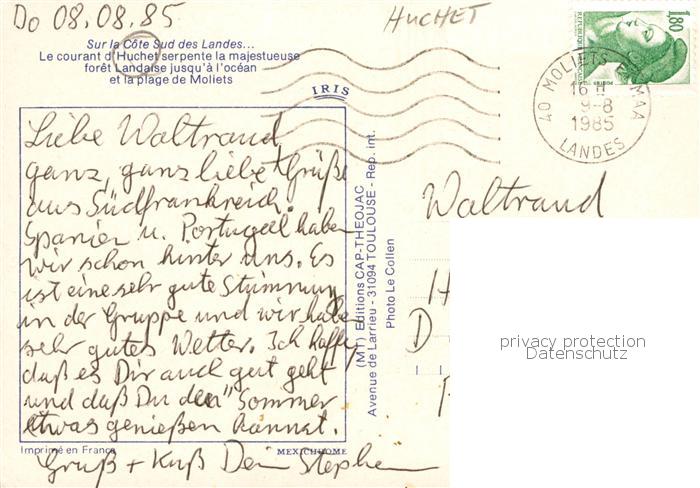 Do 08.08.85
HUCHET
Sur la Côte Sud des Landes...
Le courant d'Huchet serpente la majestueuse
forêt Landaise jusqu'à l'océan
et la plage de Moliets
IRIS
RÉPUBLIQUE FRANÇAISE
1,80
40 MOLIETS MAA
16 H
9-8
1985
LANDES
Liebe Waltraud,
ganz, ganz liebe Grüße
aus Südfrankreich.
Spanien u. Portugal haben
wir schon hinter uns. Es
ist eine sehr gute Stimmung
in der Gruppe und wir haben
sehr gutes Wetter. Ich hoffe,
daß es Dir auch gut geht
und daß Du den "Sommer
etwas genießen kannst.
Gruß + Kuß Dein Stephan
Imprimé en France
MEXICHROME
(MT) Editions CAP-THEOJAC
Avenue de Larrieu - 31094 TOULOUSE - Rep. int.
Photo Le Collen
Waltraud
H
D
privacy protection
Datenschutz